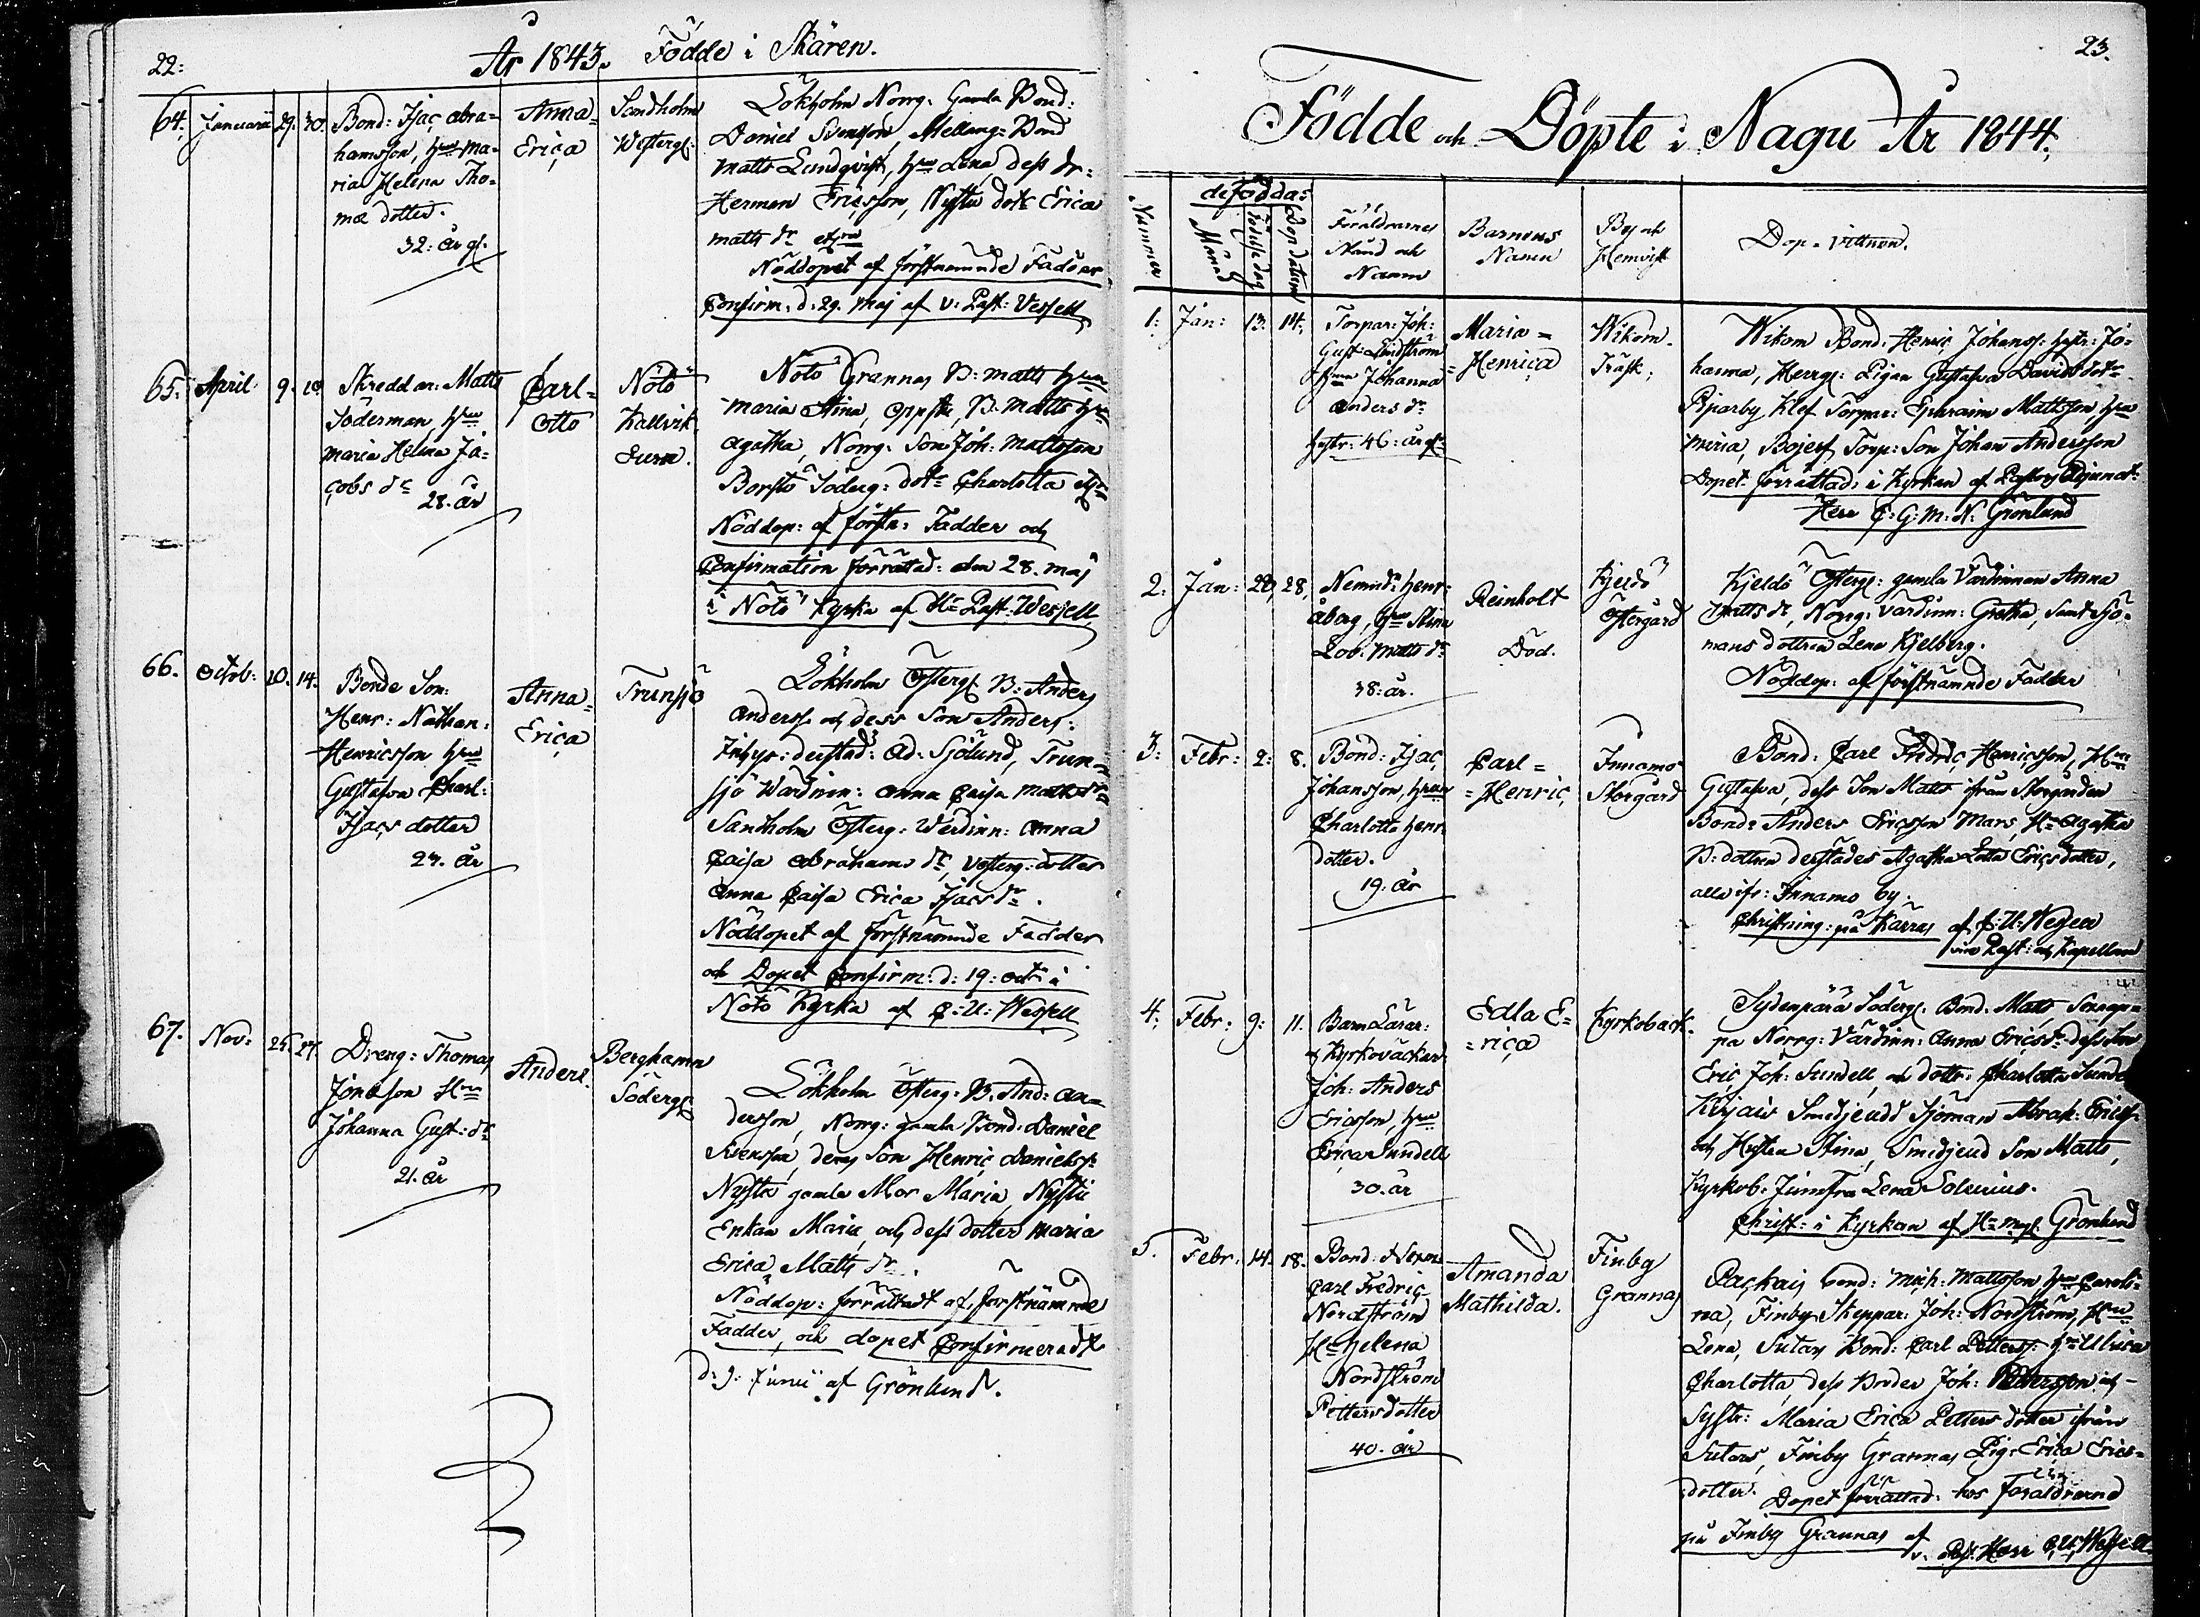 22:
År 1843. Födde i Skären.
64. Januarii 29. 30. Bond: Isac Abra=
hamsson, Hru Ma=
ria Helena Tho=
mæ dotter.
32: år gl.
Anna=
Erica
Sandholm
Westergl:
Lökholm Norrg: Gamla Bond:
Daniel Svensson, Mellang: Bond
Matts Lundqvist, Hru Lena, dess dr:
Herman Ericsson, Nystu dott: Erica
Matts dr
Nöddopet af förstnämnde Fadder
Confirm: d: 29. Maj af v: Past: Wessell
65. April. 9. 10. Skreddar: Matts
Söderman, Hru
Maria Helena Ja=
cobs dr
28. år
Carl=
Otto
Nötö
Kallvik
Nötö Grannas B: Matts Hru
Maria Stina, Oppstu, B: Matts Hru
Agatha, Norrg: Son Joh: Mattsson
Borstö Söderg: dotr Charlotta
Nöddop: af förstn: Fadder och
Confirmation förrättad: den 28. Maj
i Nötö Kyrka af Hr Past: Wessell
66. Octob: 10. 14. Bonde Son:
Henr: Nathan:
Henricsson Hru
Gustafva Charl:
Isacs dotter
27. år
Anna=
Erica
Trunsjö
Lökholm Östergl B: Anders
Anderss och dess Son Anders:
Inhys: derstad: Ad: Sjölund, Trun=
sjö Wärdinn: Anna Caisa Matts dr
Sandholm Österg: Werdinn: Anna
Caisa Abrahams dr, Westerg: dotter
Anna Caisa Erica Isacs dr.
Nöddopet af förstnämnde Fadder
och Dopet Confirm: d: 19: Octr i
Nötö Kyrka af C: U: Wessell
67. Nov: 25. 27. Dreng: Thomas
Jonsson Hru
Johanna Gust: dr
21. år
Anders.
Berghamn
Södergl
Lökholm Österg: B: And: An=
dersson, Norrg: gamla Bond: Daniel
Svensson, dens Son Henric Danielss:
Nystu gamla Mor Maria, Nystu
Enkan Maria, och dess dotter Maria
Erica Matts dr.
Nöddop: förrättadt af förstnämnde
Fadder, och dopet Confirmeradt
d: 9: Junii af Grönlund.
23.
Födde och Döpte i Nagu År 1844.
Nummer
de Födda:
Månad
Födelse dag
Dop datum
Föräldrarnes
Stånd och
Namn
Barnens
Namn
By och
Hemvist
Dop-vittnen.
1: Jan: 13. 14. Torpar: Joh:
Gust: Lindström
Hru Johanna
Anders dr
hustr: 46: år gl:
Maria=
=Henrica
Wikom.
Träsk.
Wikom Bond: Henric Johanss: hustr: Jo=
hanna, Herrgl: Pigan Gustafva Davids dotr
Piparby Klef Torpar: Ephraim Mattsson Hru
Maria, Torp: Son Johan Andersson
Dopet förrättad: i Kyrkan af Pastors Adjunct:
Herr C: G: M: N: Grönlund
2. Jan: 28, Nemnd: Henr:
Åberg, Hru Stina
Lov: Matts dr
38: år.
Reinholt
Död.
Kjeldö
Östergård
Kjeldö Östergl: gamla Värdinnan Anna
Matts dr, Norrg: Värdinn: Gretha, Samt Sjö=
mans dottren Lena Kjelberg.
Nöddop: af förstnämnde Fadder
3. Febr: 2: 8. Bond: Isac,
Johansson, Hru
Charlotta Henr:
dotter.
19: år
Carl=
=Henric,
Innamo
Storgård
Bond: Carl Fredric Henricsson, Hru
Gustafva, dess Son Matts ifrån Storgården
Bond: Anders Ericsson Mars, Hr Agatha
B: dottren derstädes Agatha Lotta Ericsdotter,
alla ifr: Innamo by.
Christning: på Kärras af C: U: Wessell
vice Past: och Kapellan
4. Febr: 9: 11. Barn Lärar:
& Kyrkoväckar:
Joh: Anders
Ericsson, Hru
Erica Sundell
30. år
Edla E=
=rica
Kyrkoback.
Sydenperä Södergl. Bond. Matts
på Norrg: Värdinn: Anna Erics dr dess Son
Eric Joh: Sundell, och dottr: Charlotta
Kirjais Smedjeudd Sjöman Abrah: Ericss:
och Hustru Stina, Smidjeud Son Matts,
Kyrkob: Jumfru Lena
Christ: i Kyrkan af Hr Mag: Grönlund
5. Febr: 14. 18. Bond:
Carl Fredric
Nordström
Hr Helena
Nordström
Pettersdotter
40. år
Amanda
Mathilda.
Finby
Grannas
Backais bond: Mich: Mattsson Hru Caroli=
na, Finby Skeppar: Joh: Nordström, Hru
Lena, Sutars Bond: Carl Petterss: Hru Ulrica
Charlotta, dess Broder Joh: Pettersson och
Systr: Maria Erica Petters dotter ifrån
Sutars, Finby Grannas Pig: Erica Erics=
dotter. Dopet förrättad: hos föräldrarne
på Finby Grannas af
v. Past: Herr C: U: Wessell